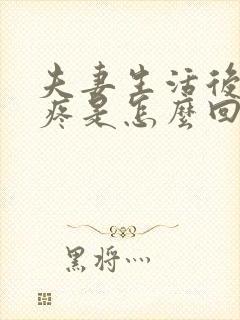 夫妻生活後
疼是怎麼回
黑将灬